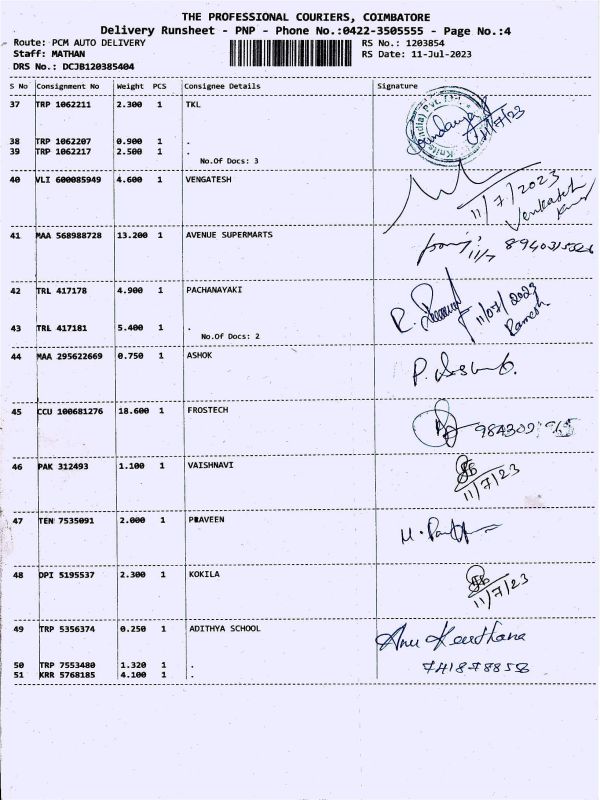 THE PROFESSIONAL COURIERS, COIMBATORE
Delivery Runsheet - PNP - Phone No.:0422-3505555 - Page No.:4
Route: PCM AUTO DELIVERY RS No.: 1203854
Staff: MATHAN RS Date: 11-Jul-2023
DRS No.: DCJB120385404
S No Consignment No Weight PCS Consignee Details Signature
37 TRP 1062211 2.300 1 TKL
11/7/23
38 TRP 1062207 0.900 1 .
39 TRP 1062217 2.500 1 .
No.Of Docs: 3
40 VLI 600085949 4.600 1 VENGATESH
11/7/2023
Venkatesh
41 MAA 568988728 13.200 1 AVENUE SUPERMARTS
11/7
42 TRL 417178 4.900 1 PACHANAYAKI
11/07/2023
Ramesh
43 TRL 417181 5.400 1 .
No.Of Docs: 2
44 MAA 295622669 0.750 1 ASHOK
45 CCU 100681276 18.600 1 FROSTECH
46 PAK 312493 1.100 1 VAISHNAVI
11/7/23
47 TEN 7535091 2.000 1 PRAVEEN
48 DPI 5195537 2.300 1 KOKILA
11/7/23
49 TRP 5356374 0.250 1 ADITHYA SCHOOL
Anu Keerthana
50 TRP 7553480 1.320 1 .
51 KRR 5768185 4.100 1 .